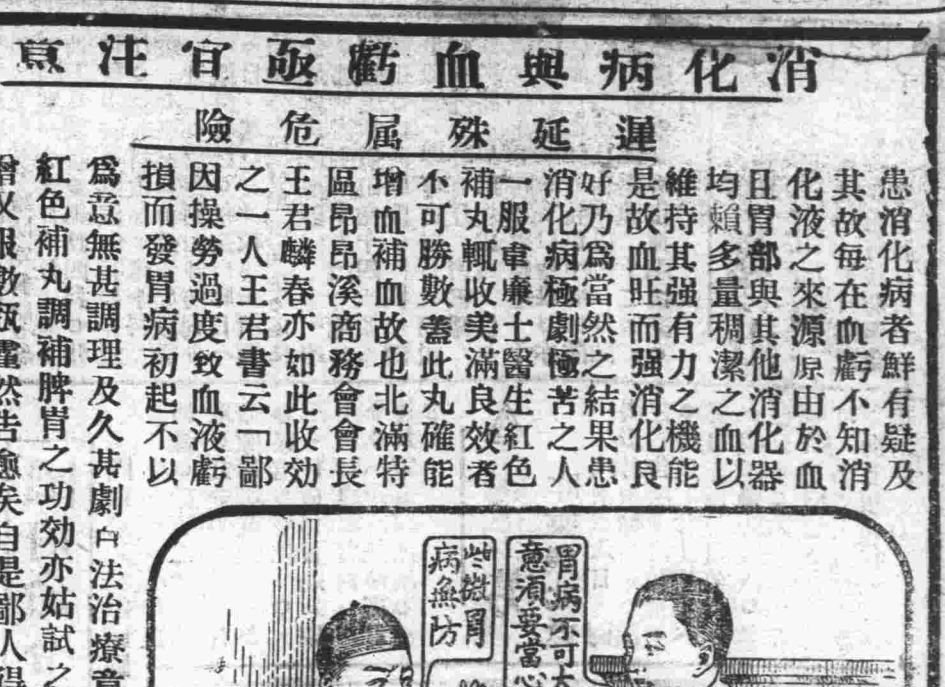 消化病與血虧亟宜注意
遲延殊屬危險
患消化病者鮮有疑及
其故每在血虧不知消
化液之來源原由於血
且胃部與其他消化器
均賴多量稠潔之血以
維持其强有力之機能
是故血旺而强消化良
好乃爲當然之結果患
消化病極劇極苦之人
一服韋廉士醫生紅色
補丸輒收美滿良效者
不可勝數蓋此丸確能
增血補血故也北滿特
區昂昂溪商務會會長
王君麟春亦如此收効
之一人王君書云「鄙
因操勞過度致血液虧
損而發胃病初起不以
爲意無甚調理及久甚劇百法治療竟
紅色補丸調補脾胃之功効亦姑試之
增又服數瓶霍然告愈矣自是鄙人得
胃病不可大
意須要當心
些微胃
病無防